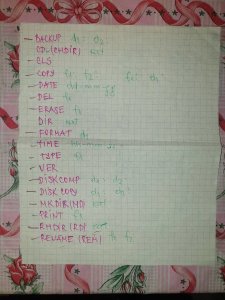 - BACKUP d1: d2:
- CD (CHDIR)
- CLS
- COPY f1 f2
- DATE dd-mm-yy
- DEL
- ERASE f1
- DIR
- FORMAT d1
- TIME
- TYPE f1
- VER
- DISKCOMP d1: d2:
- DISKCOPY d1:
- MKDIR (MD)
- PRINT f1
- RMDIR (RD)
- RENAME (REN) f1 f2